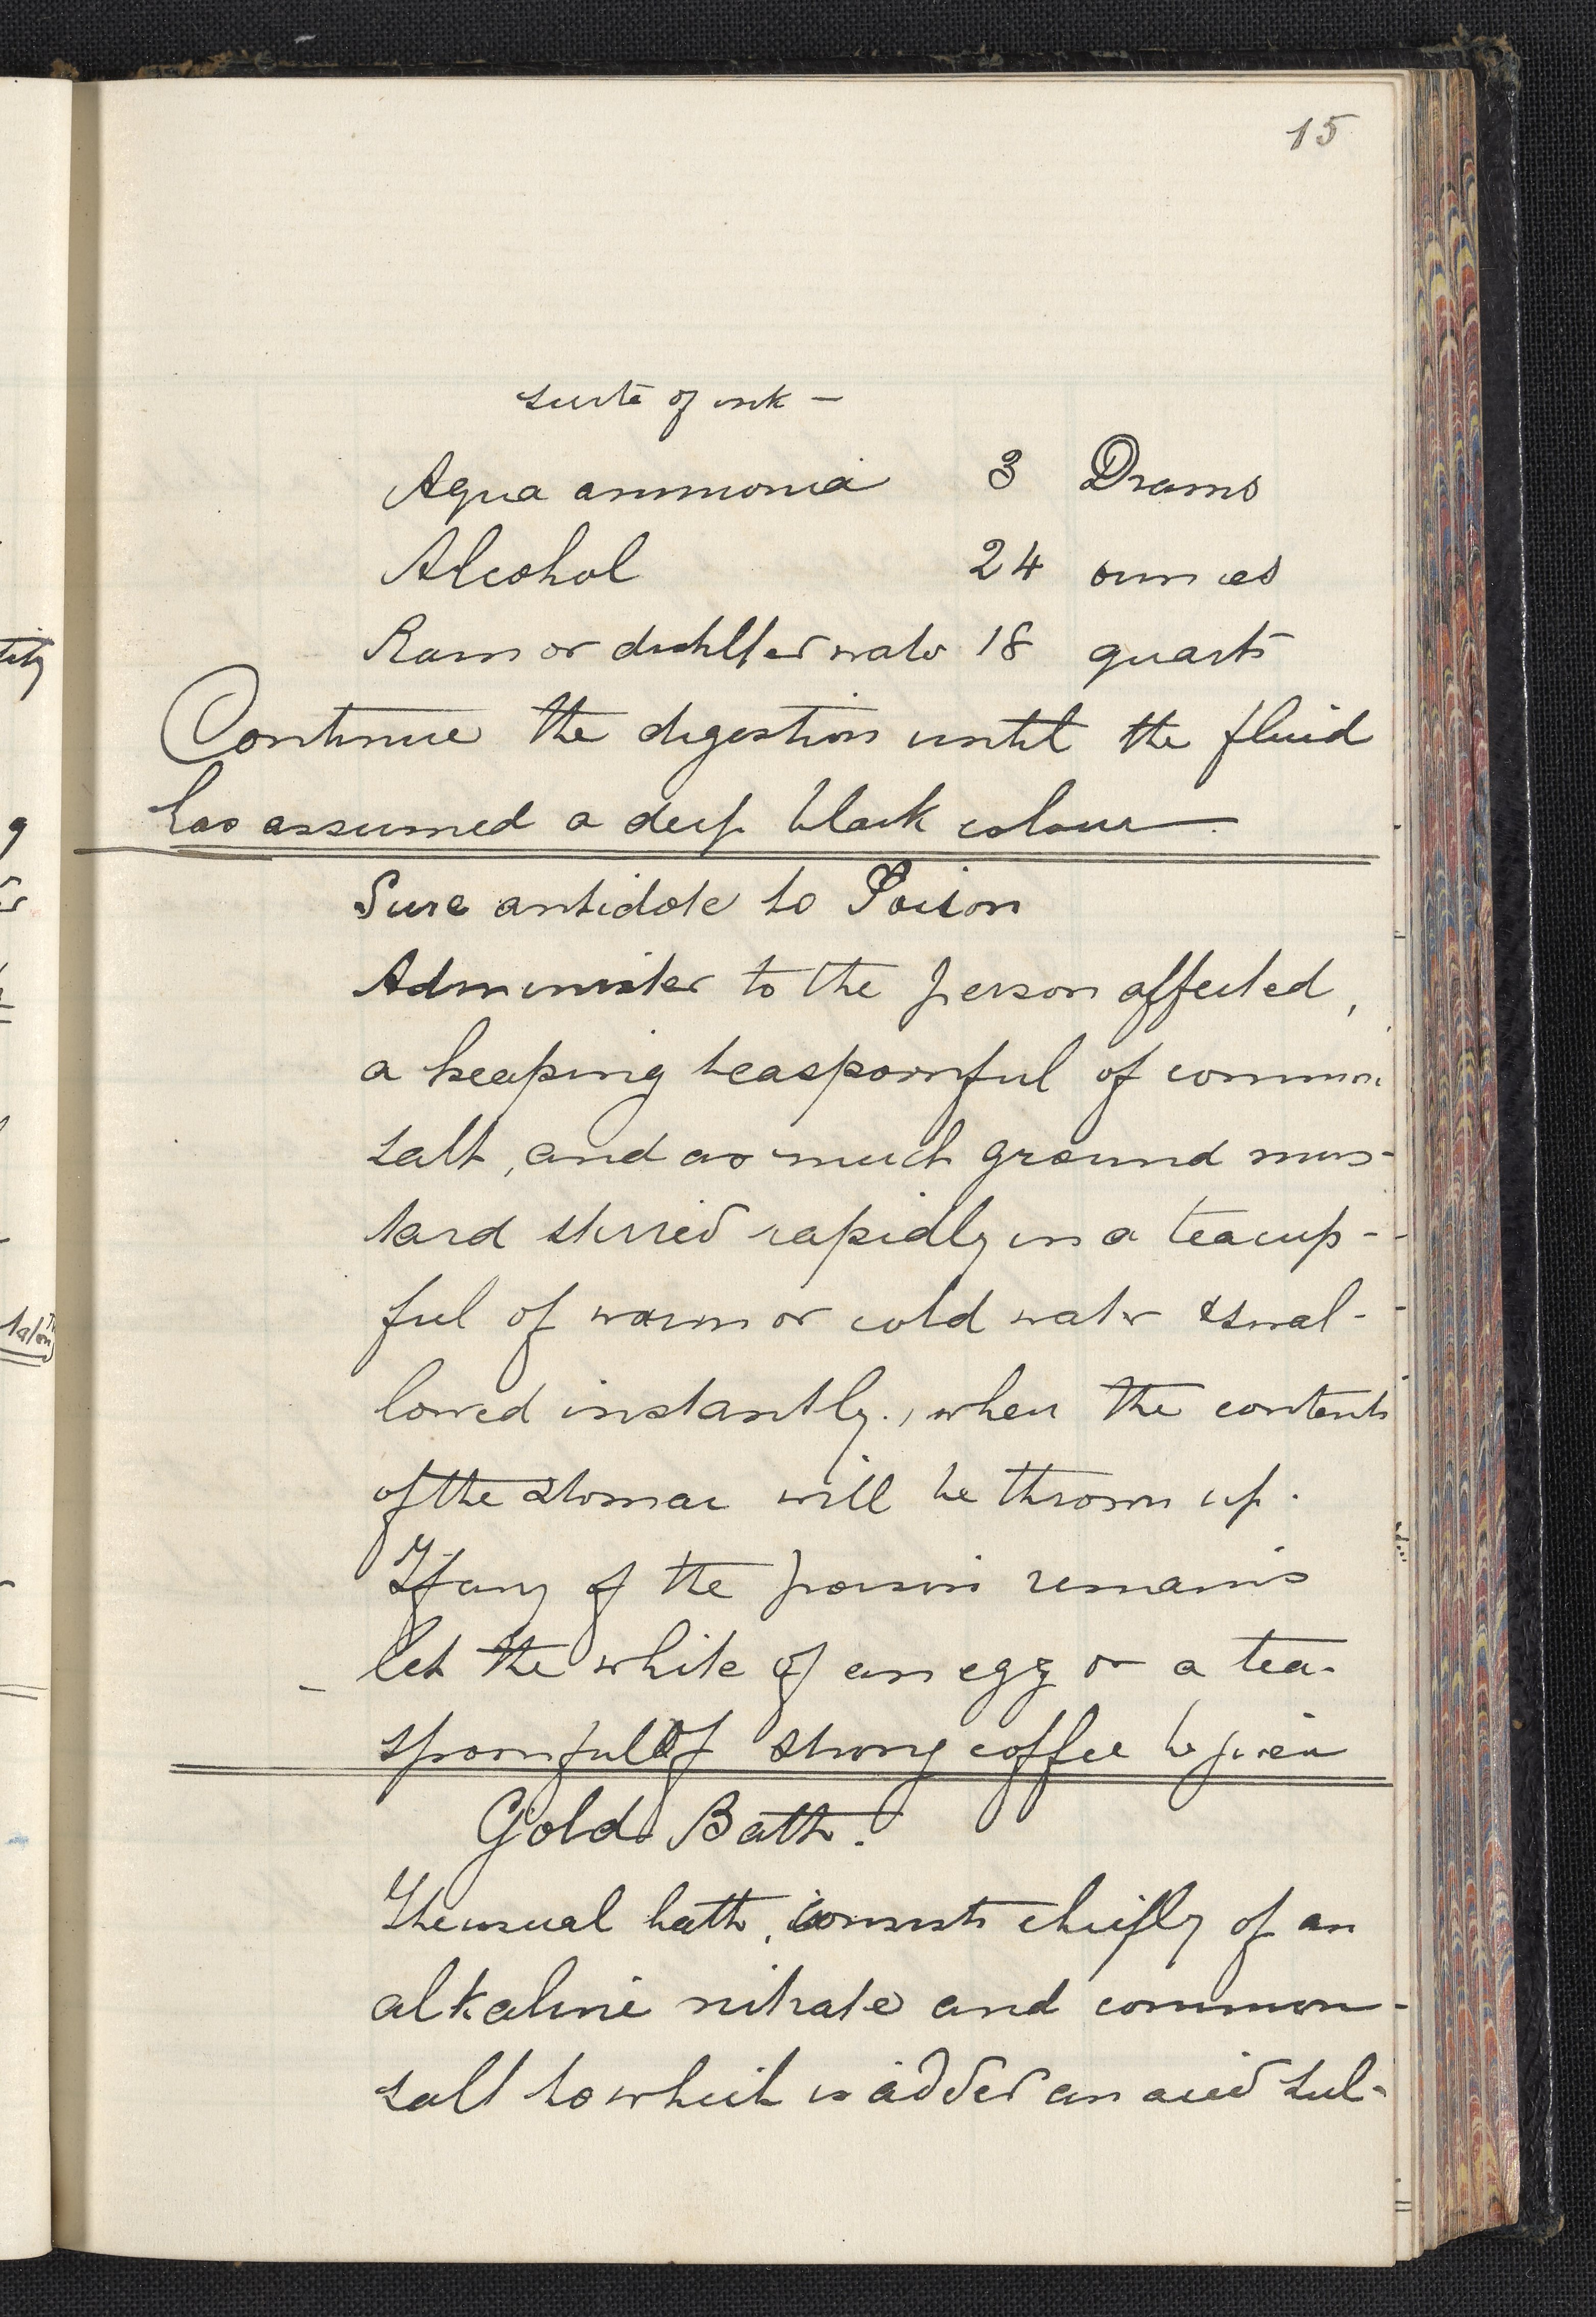 15
suite of ink —
Aqua ammonia 3 Drams
Alcohol 24 ounces
Rain or distilled water 18 quarts
Continue the digestion until the fluid
has assumed a deep black colour
Sure antidote to Poison
Administer to the person affected,
a heaping teaspoonful of common
salt, and as much ground mus-
tard stirred rapidly in a teacup-
ful of warm or cold water & swal-
lowed instantly, when the contents
of the stomac will be thrown up.
If any of the poison remains
let the white of an egg or a tea-
spoonful of strong coffee be given
Gold Bath.
The usual bath, consists chiefly of an
alkaline nitrate and common-
salt to which is added an acid sul-